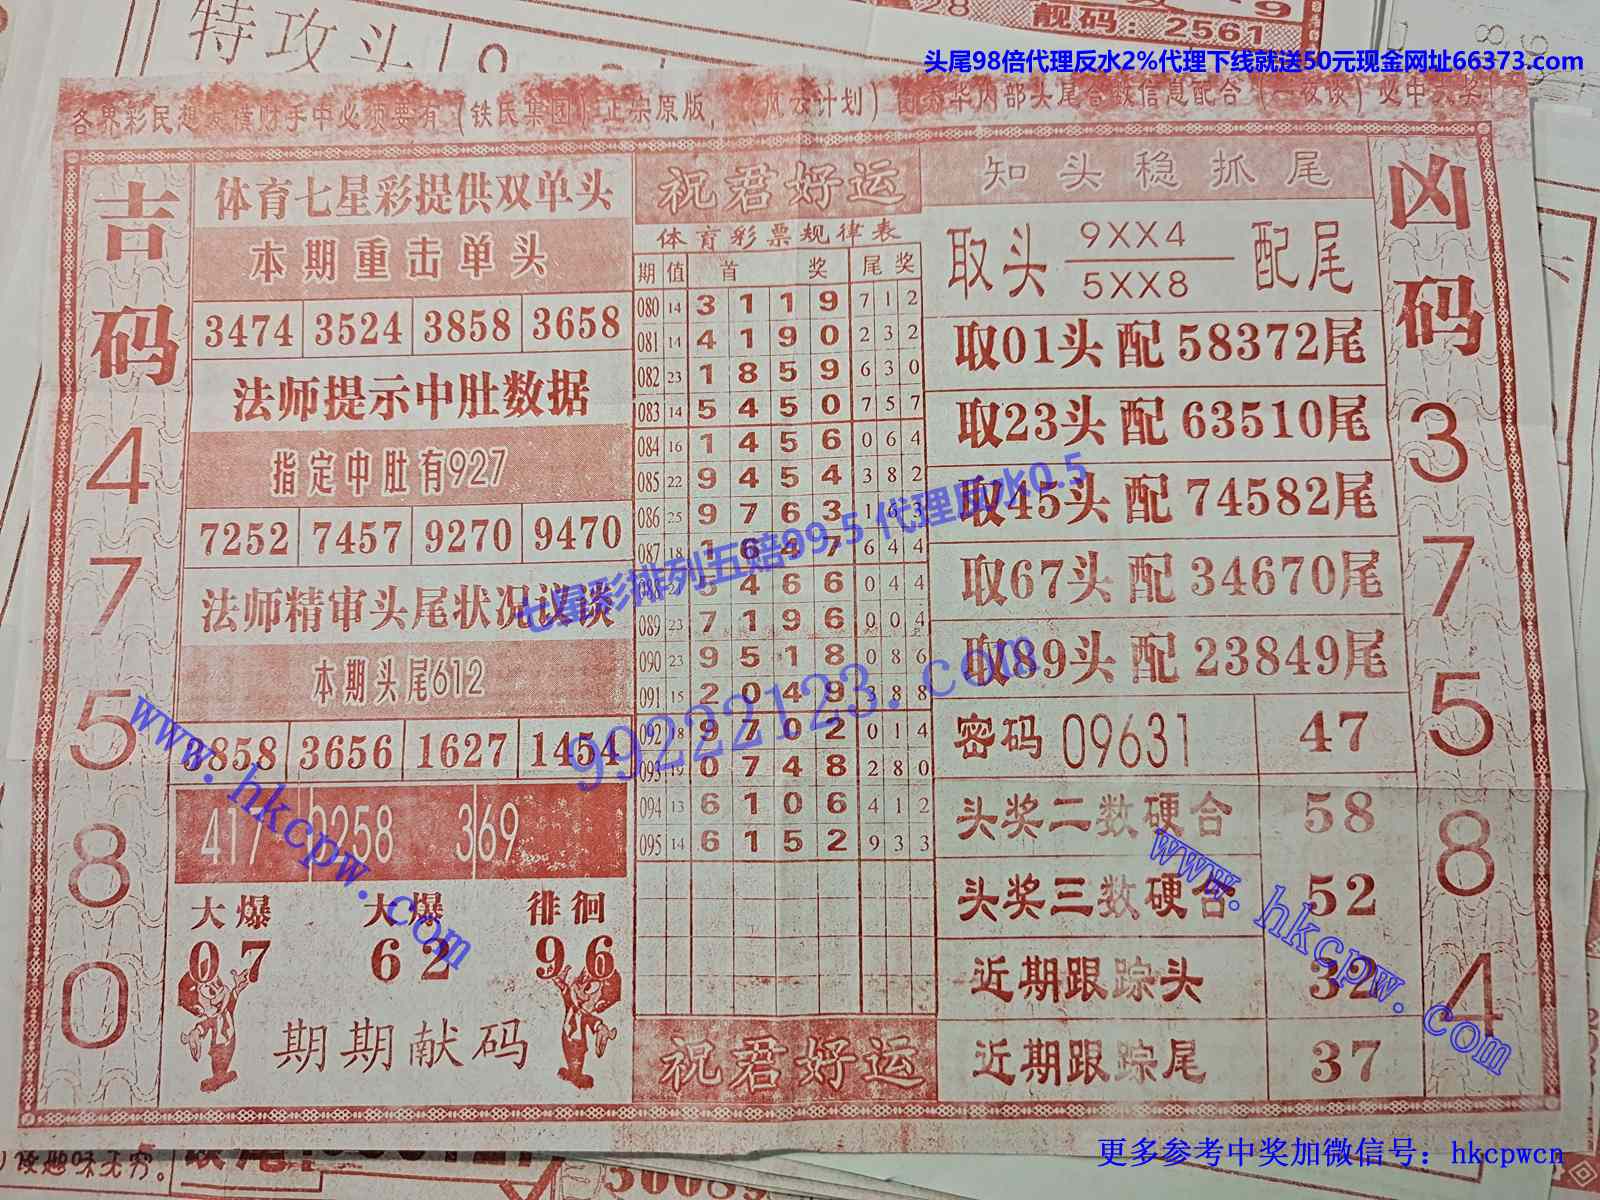 特攻头
28
靓码：2561
头尾98倍代理反水2%代理下线就送50元现金网址66373.com
各界彩民想发横财手中必须要有（铁氏集团）正宗原版
风云计划）
内部头尾合数信息配合
吉码
4
7
5
8
0
体育七星彩提供双单头
本期重击单头
3474 3524 3858 3658
法师提示中肚数据
指定中肚有927
7252 7457 9270 9470
法师精审头尾状况议谈
本期头尾612
3858 3656 1627 1454
417 0258 369
大爆 大爆 徘徊
07 62 96
期期献码
祝君好运
体育彩票规律表
期 值 首 奖 尾 奖
080 14 3 1 1 9 7 1 2
081 14 4 1 9 0 2 3 2
082 23 1 8 5 9 6 3 0
083 14 5 4 5 0 7 5 7
084 16 1 4 5 6 0 6 4
085 22 9 4 5 4 3 8 2
086 25 9 7 6 3 1 6 3
087 18 1 6 4 7 6 4 4
088 21 5 4 6 6 0 4 4
089 23 7 1 9 6 0 0 4
090 23 9 5 1 8 0 8 6
091 15 2 0 4 9 3 8 8
092 18 9 7 0 2 0 1 4
093 19 0 7 4 8 2 8 0
094 13 6 1 0 6 4 1 2
095 14 6 1 5 2 9 3 3
祝君好运
知头稳抓尾
取头 9XX4 配尾
5XX8
取01头 配 58372尾
取23头 配 63510尾
取45头 配 74582尾
取67头 配 34670尾
取89头 配 23849尾
密码 09631 47
头奖二数硬合 58
头奖三数硬合 52
近期跟踪头 32
近期跟踪尾 37
凶码
3
7
5
8
4
七星彩排列五赔99.5 代理反水0.5
99222123.com
www.hkcpw.com
www.hkcpw.com
更多参考中奖加微信号：hkcpwcn
味无穷。